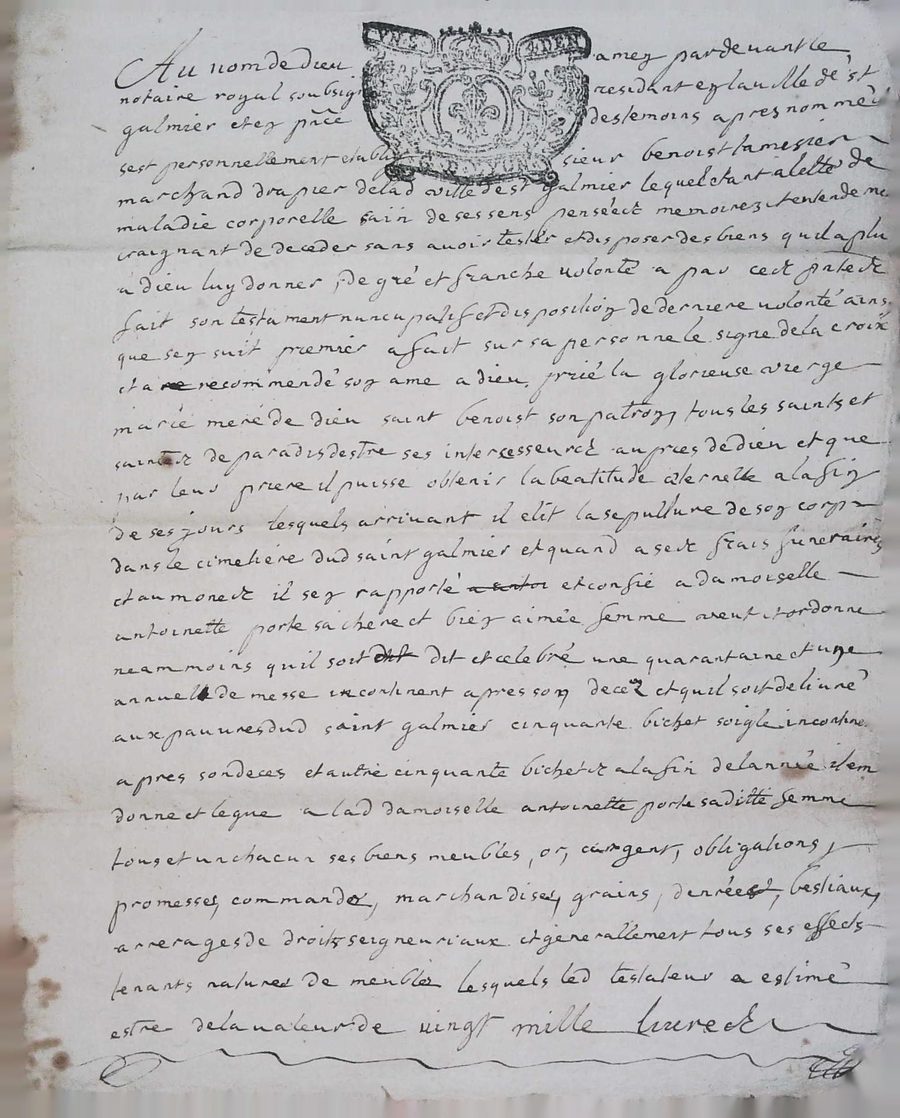 Au nom de dieu amen pardevant le
notaire royal soubsig residant en la ville de st
galmier et en pñce des temoins apres nommez
sest personnellement etabli sieur benoist
marchand drapier de lad ville de st galmier lequel etant
maladie corporelle sain de ses sens penséez memoirez et entendem
craignant de deceder sans avoir tester et disposer des biens quil a plu
a dieu luy donner, de gré et franche volonté a par cez pntez
fait son testament nuncupatif et disposition de derniere volonté ains
que sen suit premier a fait sur sa personne le signe de la croix
et a recommendé son ame a dieu, prié la glorieuse vierge
marie mere de dieu saint benoist son patron, tous les saints et
saintez de paradis destre ses intercesseurez aupres de dieu et que
par leur priere il puisse obtenir la beatitude æternelle a la fin
de ses jours lesquels arrivant il elit la sepulture de son corps
dans le cimetiere dud saint galmier et quand a sez frais funeraires
et aumonez il sen rapporte et confie a damoiselle
antoinette porte sa chere et bien aimée femme veut et ordonne
neammoins quil soit dit et celebré une quarantaine et une
annuelle de messe incontinent apres son decez et quil soit delivré
aux pauvres dud saint galmier cinquante bichet soigle incontine
apres son deces et autre cinquante bichetz a la fin de lannée item
donne et legue a lad damoiselle antoinette porte sa ditte femme
tous et un chacun ses biens meubles, or, argent, obligations,
promesses, commandes, marchandises, grains, denrées, bestiaux,
arrerages de droits seigneuriaux et generallement tous ses effects
tenants natures de meubles lesquels led testateur a estimé
estre de la valeur de vingt mille livrez